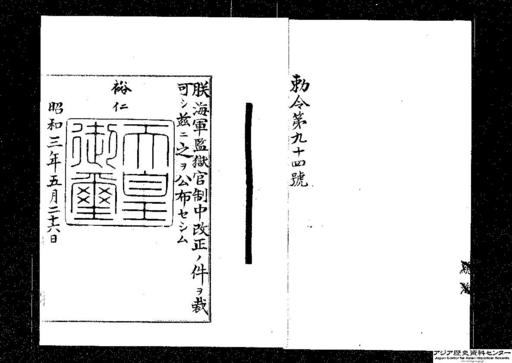 勅令第九十四號
朕海軍監獄官制中改正ノ件ヲ裁
可シ茲ニ之ヲ公布セシム
裕仁
天皇
御璽
昭和三年五月二十六日
アジア歴史資料センター
Japan Center for Asian Historical Records